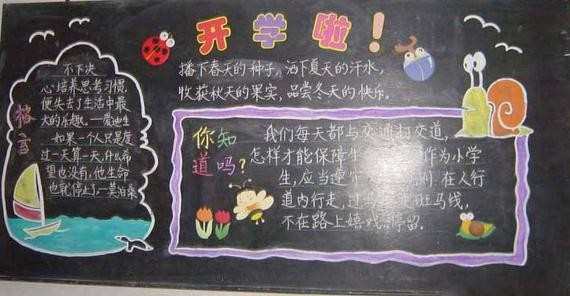 开学啦！
播下春天的种子，洒下夏天的汗水，
收获秋天的果实，品尝冬天的快乐。
格言
不下决
心培养思考习惯，
便失去了生活中最
大的乐趣。—爱迪生
如果一个人只是度
过一天算一天，什么希
望也没有，他生命
也就停止了—莫泊桑
你知
道吗？
我们每天都与交通打交道，
怎样才能保障 作为小学
生，应当遵 在人行
道内行走， 斑马线，
不在路上嬉戏、停留。